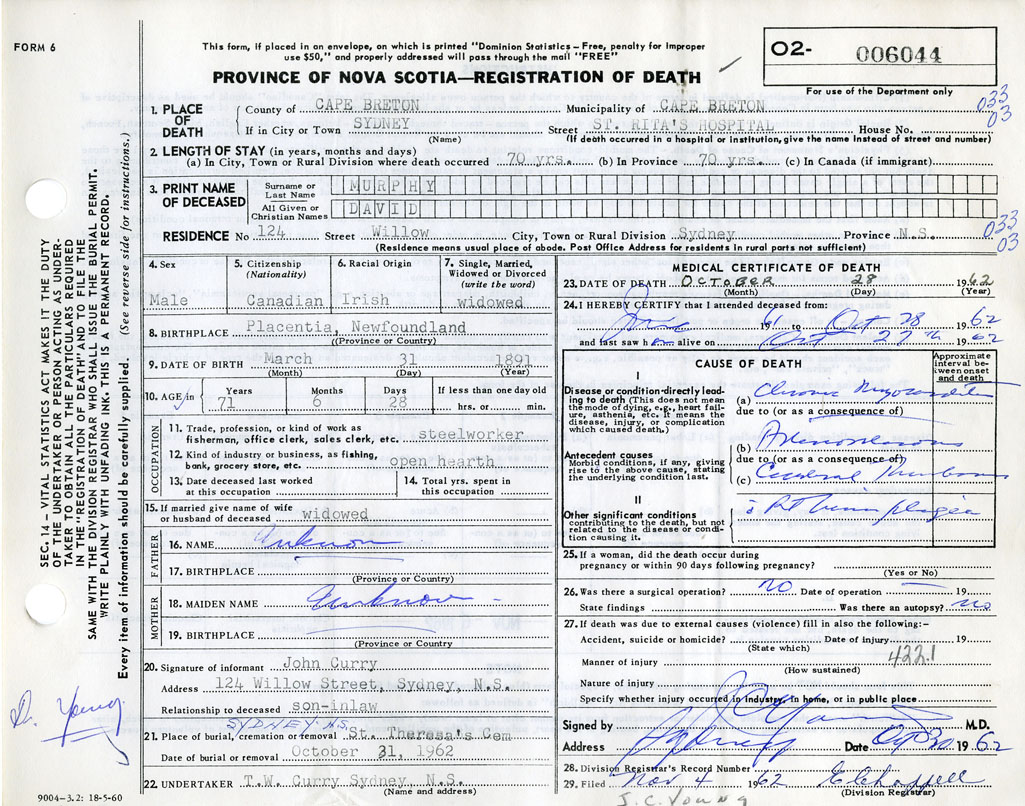 FORM 6
This form, if placed in an envelope, on which is printed "Dominion Statistics—Free, penalty for improper
use $50," and properly addressed will pass through the mail "FREE"
PROVINCE OF NOVA SCOTIA—REGISTRATION OF DEATH
02- 006044
For use of the Department only
033
03
1. PLACE OF DEATH
County of CAPE BRETON Municipality of CAPE BRETON
If in City or Town SYDNEY Street ST. RITA'S HOSPITAL House No.
(Name) (If death occurred in a hospital or institution, give the name instead of street and number)
2. LENGTH OF STAY (in years, months and days)
(a) In City, Town or Rural Division where death occurred 70 yrs. (b) In Province 70 yrs. (c) In Canada (if immigrant)
3. PRINT NAME OF DECEASED
Surname or Last Name MURPHY
All Given or Christian Names DAVID
RESIDENCE No 124 Street Willow City, Town or Rural Division Sydney Province N.S.
(Residence means usual place of abode. Post Office Address for residents in rural parts not sufficient)
033
03
4. Sex
Male
5. Citizenship
(Nationality)
Canadian
6. Racial Origin
Irish
7. Single, Married, Widowed or Divorced
(write the word)
widowed
8. BIRTHPLACE Placentia, Newfoundland
(Province or Country)
9. DATE OF BIRTH March 31 1891
(Month) (Day) (Year)
10. AGE Years Months Days If less than one day old
71 6 28 hrs. or min.
OCCUPATION
11. Trade, profession, or kind of work as
fisherman, office clerk, sales clerk, etc. steelworker
12. Kind of industry or business, as fishing,
bank, grocery store, etc. open hearth
13. Date deceased last worked
at this occupation
14. Total yrs. spent in
this occupation
15. If married give name of wife
or husband of deceased widowed
FATHER
16. NAME Unknown
17. BIRTHPLACE
(Province or Country)
MOTHER
18. MAIDEN NAME Unknown
19. BIRTHPLACE
(Province or Country)
20. Signature of informant John Curry
Address 124 Willow Street, Sydney, N.S.
Relationship to deceased son-inlaw
SYDNEY N.S.
21. Place of burial, cremation or removal St. Theresa's Cem
Date of burial or removal October 31, 1962
22. UNDERTAKER T.W. Curry Sydney, N.S.
(Name and address)
9004—3.2: 18-5-60
MEDICAL CERTIFICATE OF DEATH
23. DATE OF DEATH OCTOBER 28 1962
(Month) (Day) (Year)
24. I HEREBY CERTIFY that I attended deceased from:
June 61 to Oct 28 1962
and last saw him alive on Oct 27th 1962
CAUSE OF DEATH
Approximate interval between onset and death
I
Disease or condition directly leading to death (This does not mean the mode of dying, e.g., heart failure, asthenia, etc. It means the disease, injury, or complication which caused death.)
(a) Chronic Myocarditis
due to (or as a consequence of)
Antecedent causes
Morbid conditions, if any, giving rise to the above cause, stating the underlying condition last.
(b)
due to (or as a consequence of)
(c) Cerebral Thrombosis
II
Other significant conditions
contributing to the death, but not related to the disease or condition causing it.
25. If a woman, did the death occur during
pregnancy or within 90 days following pregnancy?
(Yes or No)
26. Was there a surgical operation? NO Date of operation
State findings Was there an autopsy? no
27. If death was due to external causes (violence) fill in also the following:—
Accident, suicide or homicide? Date of injury 19
(State which)
422.1
Manner of injury
(How sustained)
Nature of injury
Specify whether injury occurred in industry, in home, or in public place
Signed by J C Young M.D.
Address Sydney Date Oct 30 1962
28. Division Registrar's Record Number
29. Filed Nov 4 1962 E Chappell
(Division Registrar)
J.C. YOUNG
SEC. 14—VITAL STATISTICS ACT MAKES IT THE DUTY
OF THE UNDERTAKER OR PERSON ACTING AS UNDER-
TAKER TO OBTAIN ALL THE PARTICULARS REQUIRED
IN THE "REGISTRATION OF DEATH" AND TO FILE THE
SAME WITH THE DIVISION REGISTRAR WHO SHALL ISSUE THE BURIAL PERMIT.
WRITE PLAINLY WITH UNFADING INK. THIS IS A PERMANENT RECORD.
Every item of information should be carefully supplied. (See reverse side for instructions.)
Dr. Young